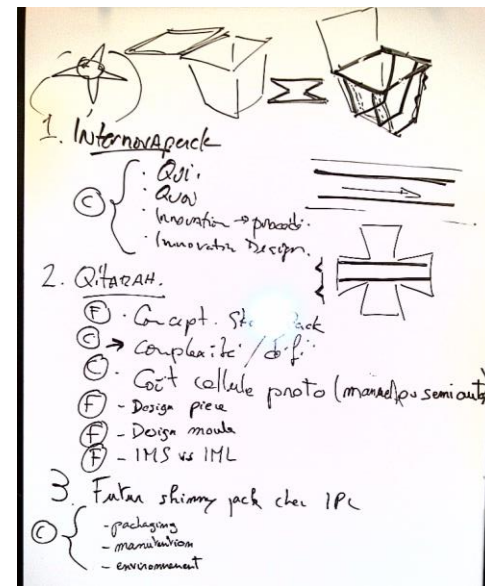 1. Internovapack
C
· Qui.
· Quoi
· Innovation → procédé.
· Innovation Design.
2. QITARAH.
F · Concept. Pack
C → Complexité / défi
C · Coût cellule proto (manuel ou semi auto)
F - Design piece
F - Design moule
F - IMS vs IML
3. Futur shimmy pack chez IPC
C
- packaging
- manutention
- environnement